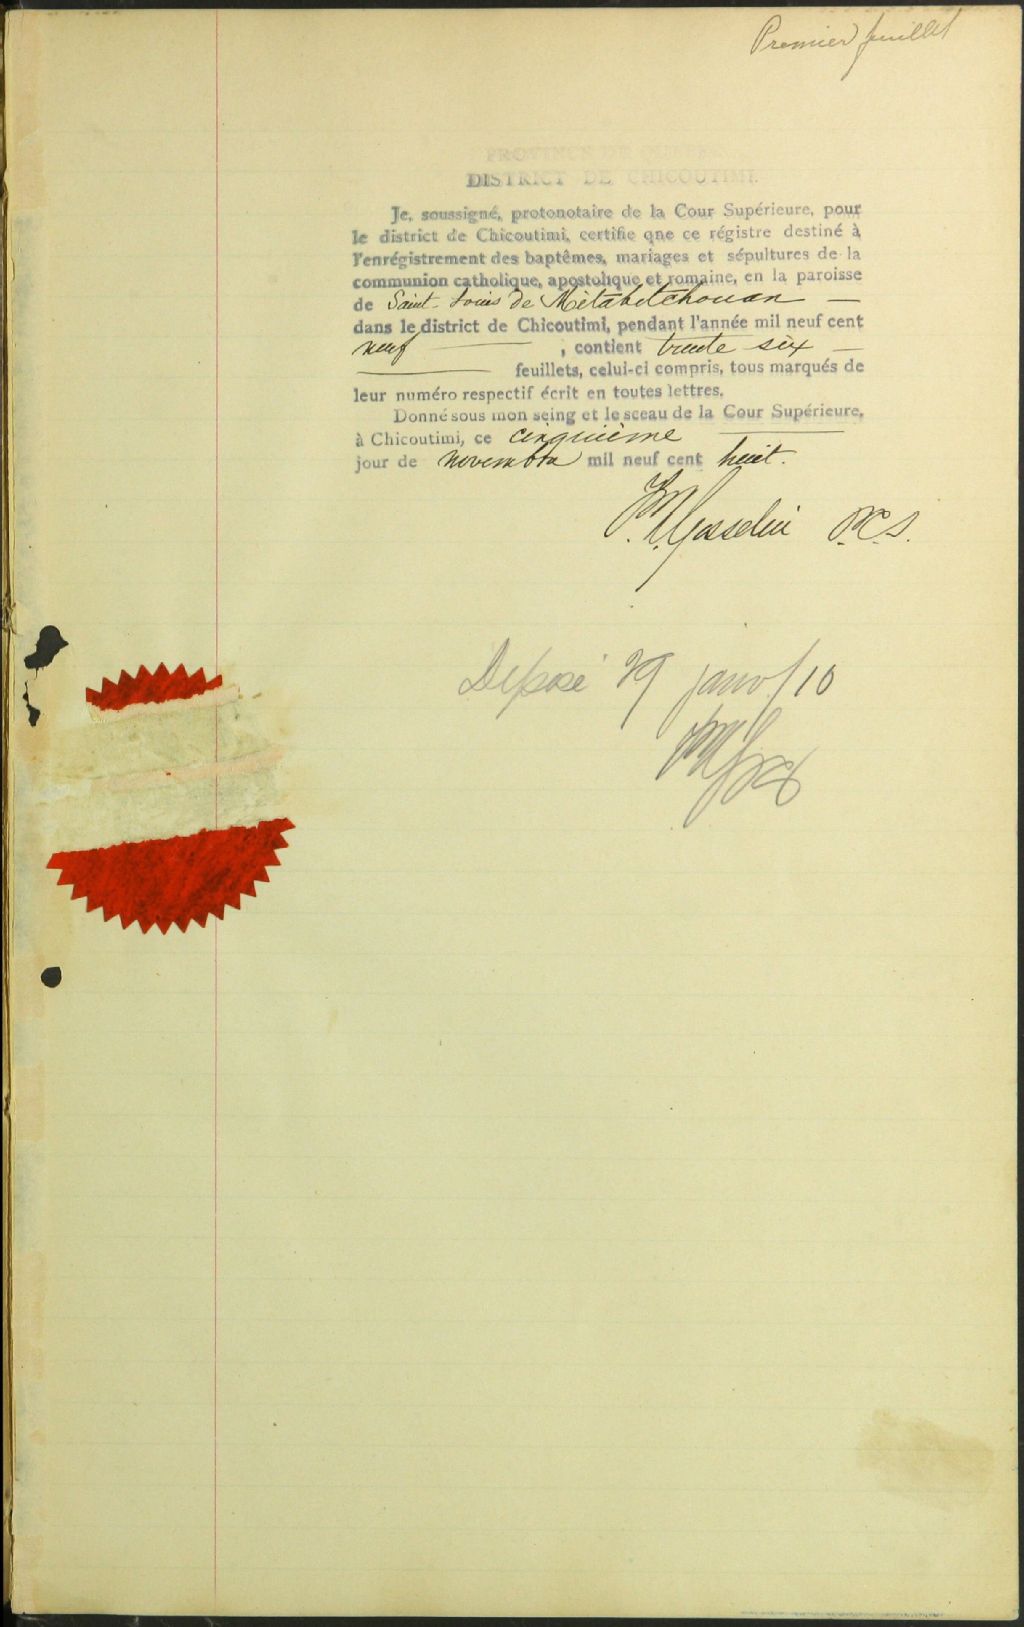 Premier feuillet
PROVINCE DE QUEBEC
DISTRICT DE CHICOUTIMI.
Je, soussigné, protonotaire de la Cour Supérieure, pour
le district de Chicoutimi, certifie qne ce régistre destiné à
l'enrégistrement des baptêmes, mariages et sépultures de la
communion catholique, apostolique et romaine, en la paroisse
de Saint-Louis de Métabetchouan —
dans le district de Chicoutimi, pendant l'année mil neuf cent
neuf — , contient trente six —
— feuillets, celui-ci compris, tous marqués de
leur numéro respectif écrit en toutes lettres.
Donné sous mon seing et le sceau de la Cour Supérieure,
à Chicoutimi, ce cinquième —
jour de novembre mil neuf cent huit.
Gosselin P.C.S.
Déposé 29 janv/10